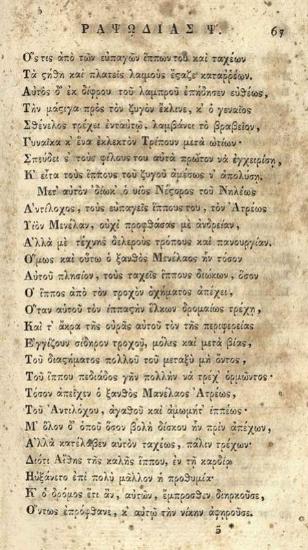 ΡΑΨΩΔΙΑΣ Ψ. 67
Ὅςτις ἀπὸ τῶν εὐπαγῶν ἵππων του καὶ ταχέων
Τὰ ςήθη καὶ πλατεῖς λαιμοὺς ἔςαζε καταῤῥέων.
Αὐτὸς δ' ἐκ δίφρου τοῦ λαμπροῦ ἐπήδησεν εὐθέως,
Τὴν μάςιγα πρὸς τὸν ζυγὸν ἔκλινε, κ' ὁ γεναῖος
Σθένελος τρέχει ἐνταυτῷ, λαμβάνει τὸ βραβεῖον,
Γυναῖκα κ' ἕνα ἐκλεκτὸν Τρίπουν μετὰ ὠτίων·
Σπεύδει ς τοὺς φίλους του αὐτὰ πρῶτον νὰ ἐγχειρίσῃ,
Κ' εἶτα τοὺς ἵππους τοῦ ζυγοῦ ἀμέσως ν' ἀπολύσῃ.
Μετ' αὐτὸν δίωκ' ὁ υἱὸς Νέςορος τοῦ Νηλέως
Ἀντίλοχος, τοὺς εὐπαγεῖς ἵππους του, τὸν Ἀτρέως
Υἱὸν Μενέλαν, οὐχὶ προφθάσας μὲ ἀνδρείαν,
Ἀλλὰ μὲ τέχνης δολεροὺς τρόπους καὶ πανουργίαν.
Ὅμως καὶ οὕτω ὁ ξανθὸς Μενέλαος ἦν τόσον
Αὐτοῦ πλησίον, τοὺς ταχεῖς ἵππους διώκων, ὅσον
Ὁ ἵππος ἀπὸ τὸν τροχὸν ὀχήματος ἀπέχει,
Ὅταν αὐτοῦ τὸν ἱππασὴν ἕλκων δρομαίως τρέχῃ,
Καὶ τ' ἄκρα τῆς οὐρᾶς αὐτοῦ τὸν τῆς περιφερείας
Ἐγγίζουν σίδηρον τροχοῦ, μόλις καὶ μετὰ βίας,
Τοῦ διαςήματος πολλοῦ τοῦ μεταξὺ μὴ ὄντος,
Τοῦ ἵππου πεδιάδος γῆν πολλὴν νὰ τρέχ' ὁρμῶντος·
Τόσον ἀπεῖχεν ὁ ξανθὸς Μανέλαος Ἀτρέως,
Τοῦ Ἀντιλόχου, ἀγαθοῦ καὶ ἀμωμήτ' ἱππέως·
Μ' ὅλον ὁ' ὁποῦ ὅσον βολὴ δίσκου ἦν πρὶν ἀπέχων,
Ἀλλὰ κατέλαβεν αὐτὸν ταχέως, πάλιν τρέχων·
Διότι Αἴθης τῆς καλῆς ἵππου, ἐν τῇ καρδίᾳ
Ηὔξανετο ἐπὶ πολὺ μᾶλλον ἡ προθυμία·
Κ' ὁ δρόμος ἔτι ἄν, αὐτῶν, ἔμπροσθεν διηρκοῦσε,
Οὕτως ἐπρόφθανε, κ' αὐτῷ τὴν νίκην ἀφῃροῦσε.
5